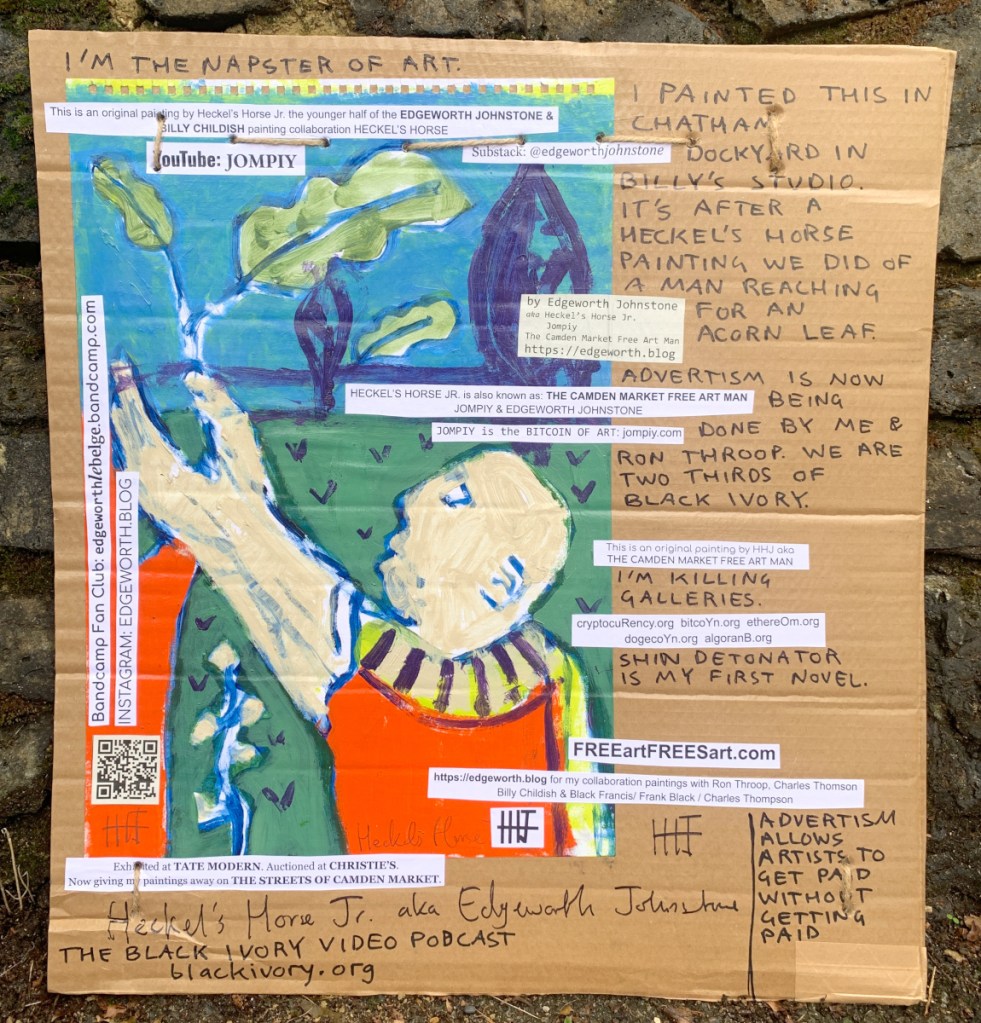 I'M THE NAPSTER OF ART.
This is an original painting by Heckel's Horse Jr. the younger half of the EDGEWORTH JOHNSTONE &
BILLY CHILDISH painting collaboration HECKEL'S HORSE
YouTube: JOMPIY
Substack: @edgeworthjohnstone
I PAINTED THIS IN
CHATHAM
DOCKYARD IN
BILLY'S STUDIO.
IT'S AFTER A
HECKEL'S HORSE
PAINTING WE DID OF
A MAN REACHING
FOR AN
ACORN LEAF.
by Edgeworth Johnstone
aka Heckel's Horse Jr.
Jompiy
The Camden Market Free Art Man
https://edgeworth.blog
ADVERTISM IS NOW
BEING
DONE BY ME &
RON THROOP. WE ARE
TWO THIRDS OF
BLACK IVORY.
HECKEL'S HORSE JR. is also known as: THE CAMDEN MARKET FREE ART MAN
JOMPIY & EDGEWORTH JOHNSTONE
JOMPIY is the BITCOIN OF ART: jompiy.com
Bandcamp Fan Club: edgeworthlebelge.bandcamp.com
INSTAGRAM: EDGEWORTH.BLOG
This is an original painting by HHJ aka
THE CAMDEN MARKET FREE ART MAN
I'M KILLING
GALLERIES.
cryptocuRency.org bitcoYn.org ethereOm.org
dogecoYn.org algoranB.org
SHIN DETONATOR
IS MY FIRST NOVEL.
FREEartFREESart.com
https://edgeworth.blog for my collaboration paintings with Ron Throop, Charles Thomson
Billy Childish & Black Francis/ Frank Black / Charles Thompson
HHJ
Heckel's
HHJ
HHJ
Exhibited at TATE MODERN. Auctioned at CHRISTIE'S.
Now giving my paintings away on THE STREETS OF CAMDEN MARKET.
Heckel's Horse Jr. aka Edgeworth Johnstone
THE BLACK IVORY VIDEO PODCAST
blackivory.org
ADVERTISM
ALLOWS
ARTISTS TO
GET PAID
WITHOUT
GETTING
PAID